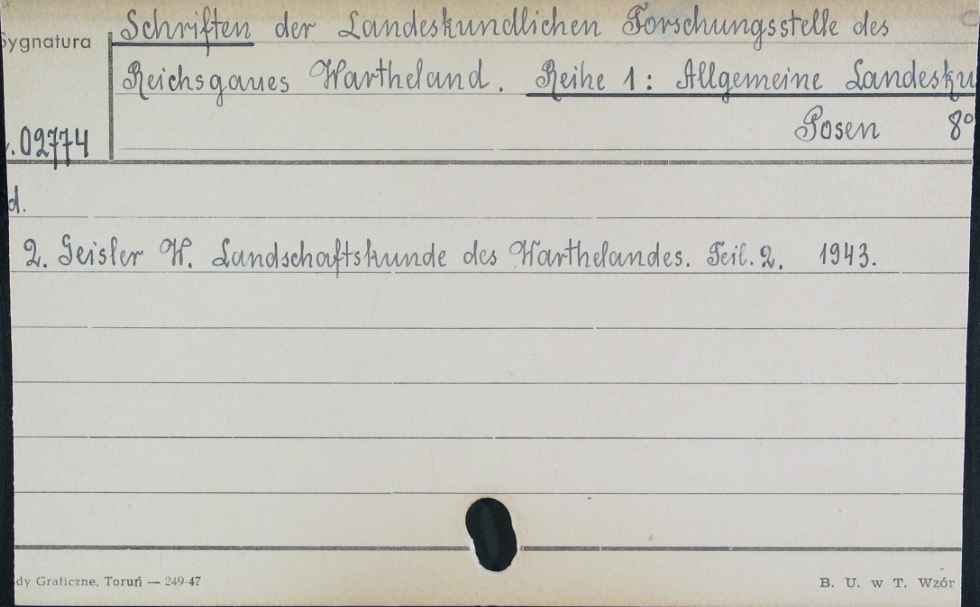 Schriften der Landeskundlichen Forschungsstelle des
Sygnatura
Reichsgaues Wartheland. Reihe 1: Allgemeine Landesku
Posen 8°
.02774
d.
2. Geisler W. Landschaftskunde des Warthelandes. Teil. 2. 1943.
dy Graficzne, Toruń — 249-47
B. U. w T. Wzór